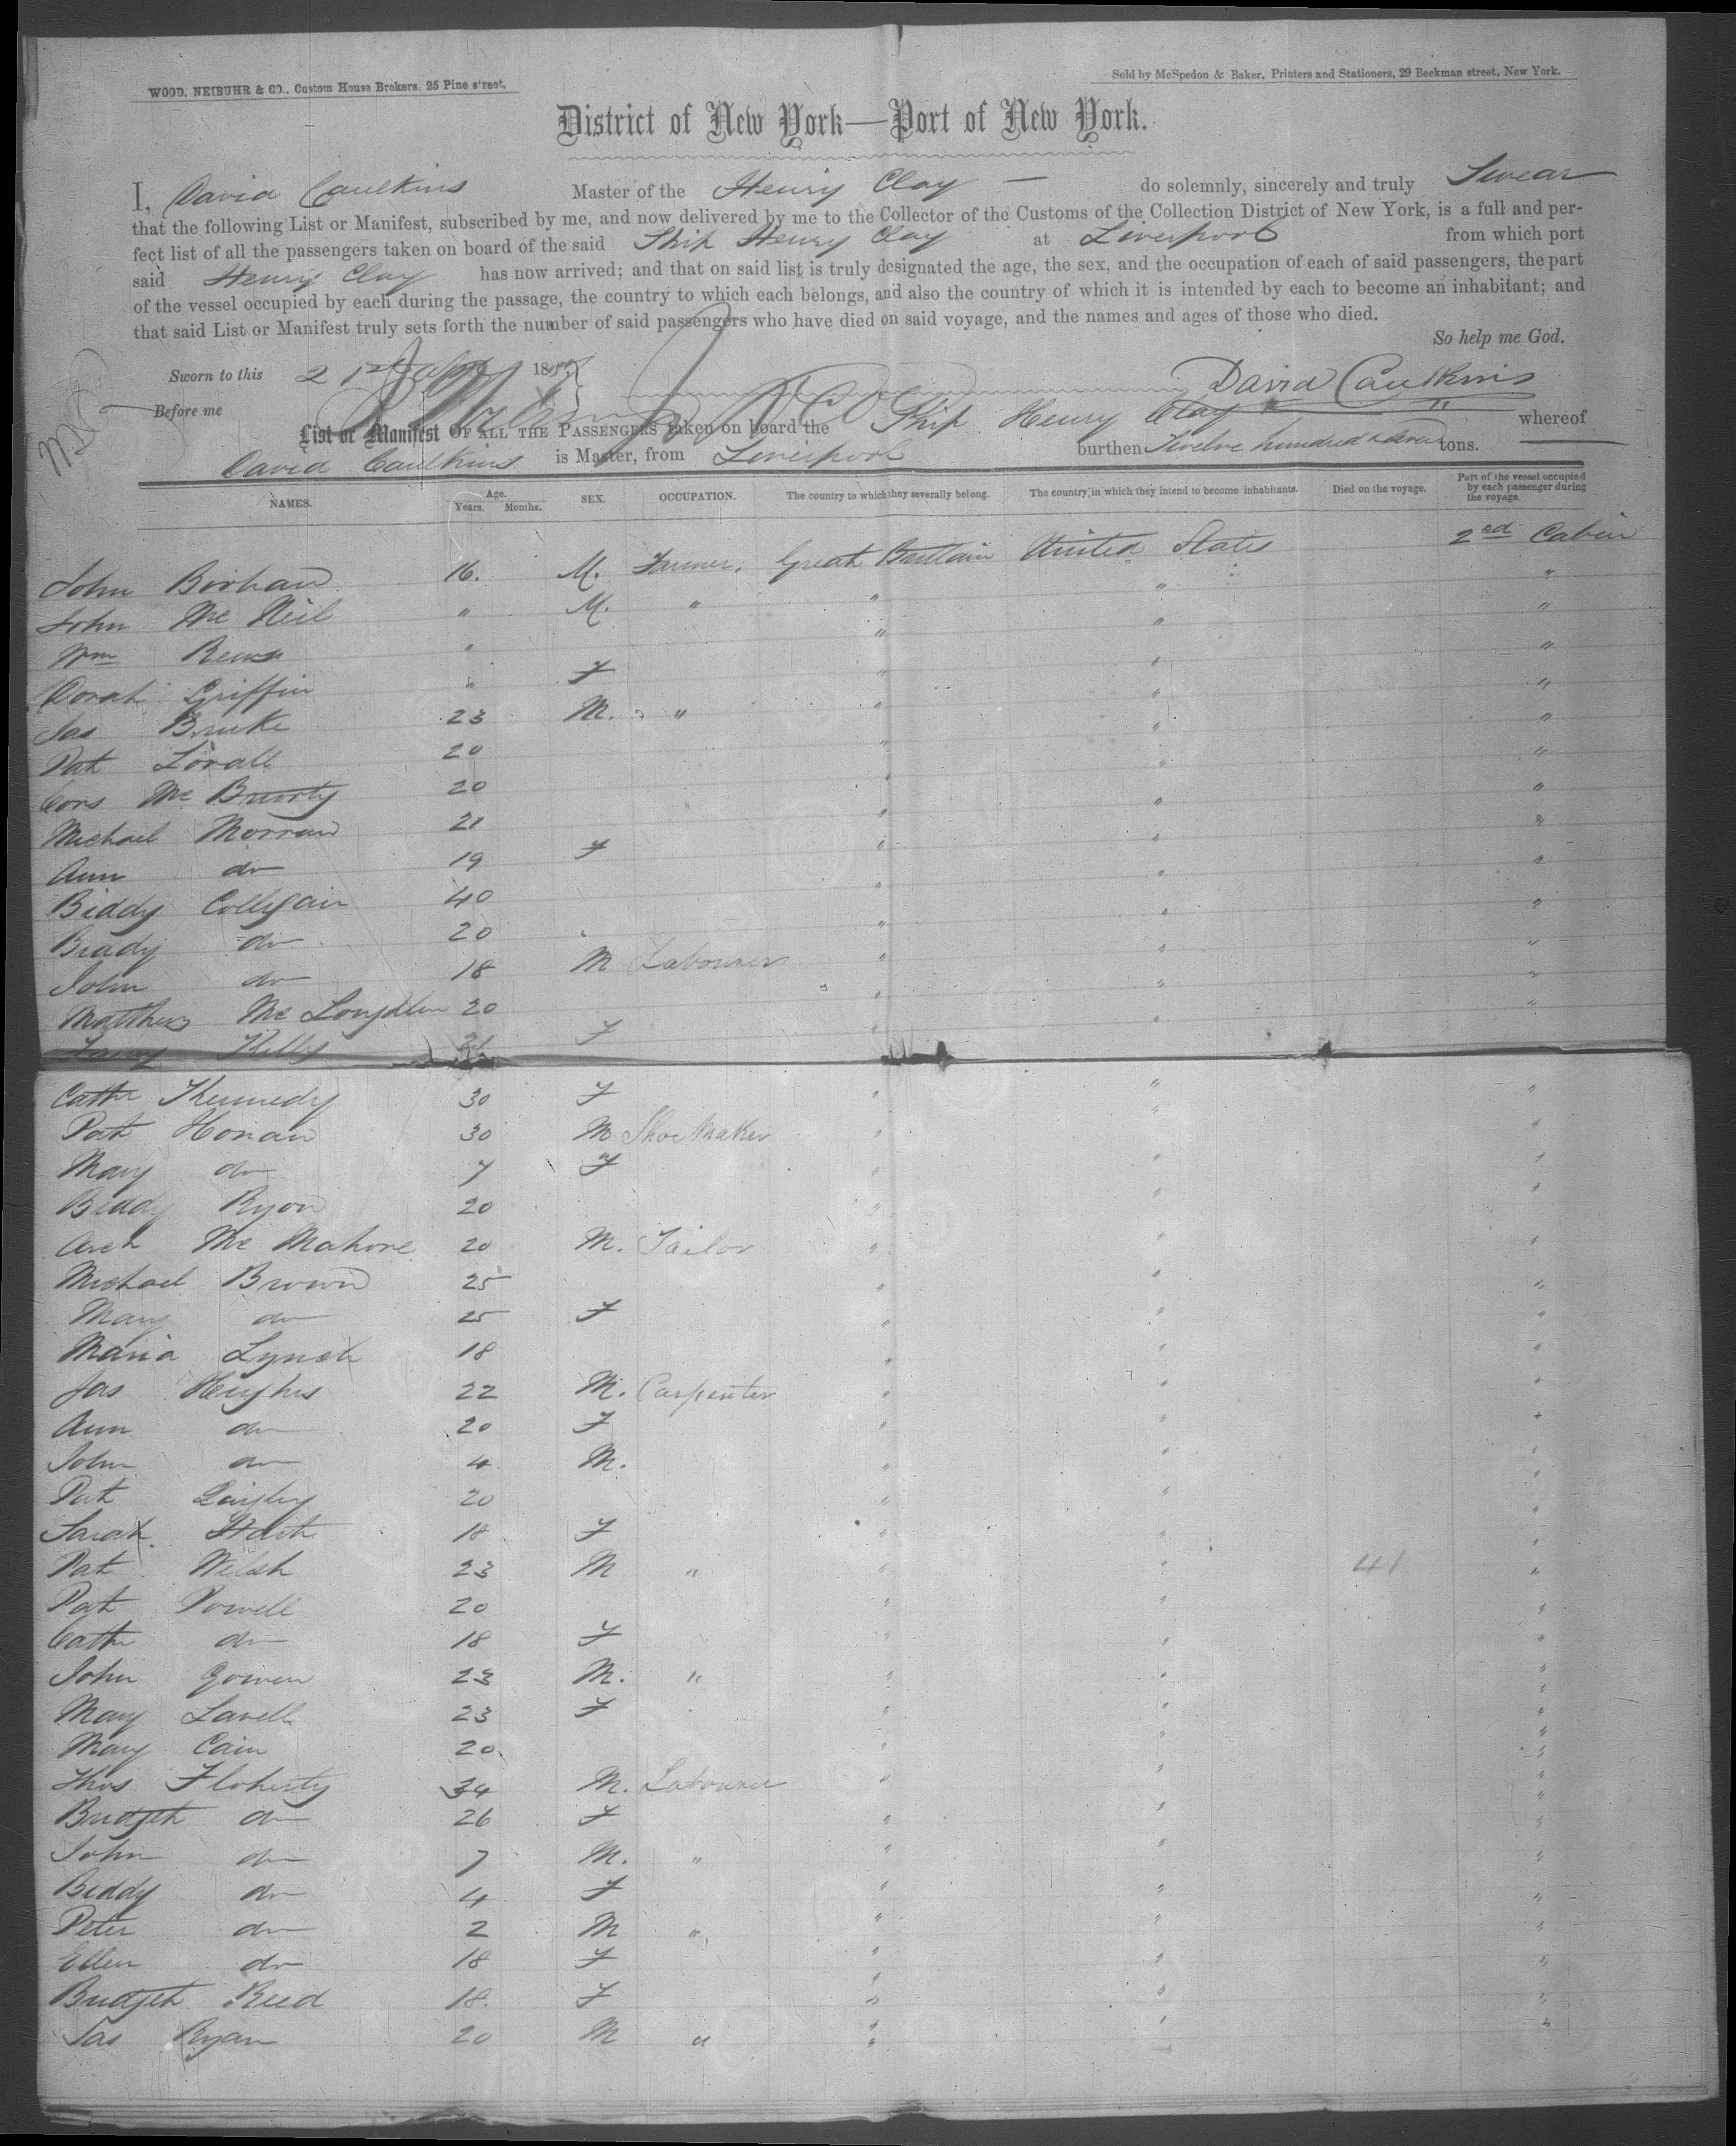 WOOD, NEIBUHR & CO., Custom House Brokers, 25 Pine street.
Sold by McSpedon & Baker, Printers and Stationers, 29 Beekman street, New York.
District of New York—Port of New York.
I, David Caulkins Master of the Henry Clay — do solemnly, sincerely and truly Swear
that the following List or Manifest, subscribed by me, and now delivered by me to the Collector of the Customs of the Collection District of New York, is a full and per-
fect list of all the passengers taken on board of the said Ship Henry Clay at Liverpool from which port
said Henry Clay has now arrived; and that on said list is truly designated the age, the sex, and the occupation of each of said passengers, the part
of the vessel occupied by each during the passage, the country to which each belongs, and also the country of which it is intended by each to become an inhabitant; and
that said List or Manifest truly sets forth the number of said passengers who have died on said voyage, and the names and ages of those who died.
So help me God.
Sworn to this 21st 185
David Caulkins
Before me
List or Manifest OF ALL THE PASSENGERS taken on board the Ship Henry Clay whereof
David Caulkins is Master, from Liverpool burthen Twelve hundred tons.
NAMES. Age. Years. Months. SEX. OCCUPATION. The country to which they severally belong. The country in which they intend to become inhabitants. Died on the voyage. Part of the vessel occupied by each passenger during the voyage.
John 16. M. Farmer, Great Brittain United States 2ed Cabin
John Mc Neil " M. " " " "
Wm " " " "
Griffin " F " " "
Jas 23 M. " " " "
Pat 20 " " "
Mc 20 " " "
Michael Morran 21 " " "
Ann do 19 F " " "
Biddy Colligain 40 " " "
do 20 " " "
John do 18 M Labourer " " "
Matthew Mc 20 " " "
Kelly F " " "
Cathe Kennedy 30 F " " "
Pat Honan 30 M Shoe Maker " " "
Mary do 7 F " " "
Biddy Ryon 20 " " "
Arch Mc Mahone 20 M. Tailor " " "
Michael Brown 25 " " "
Mary do 25 F " " "
Maria Lynch 18 " " "
Jas Hughes 22 M. Carpenter " " "
Ann do 20 F " " "
John do 4 M. " " "
Pat 20 " " "
Sarah 18 F " " "
Pat Welsh 23 M " " " 41 "
Pat Powell 20 " " "
Cathe do 18 F " " "
John Gowen 23 M. " " " "
Mary Lavell 23 F " " "
Mary Cain 20 " " "
Thos Floherty 34 M. Labourer " " "
Bridget do 26 F " " "
John do 7 M. " " " "
Biddy do 4 F " " "
Peter do 2 M " " " "
Ellen do 18 F " " "
Bridget Reed 18. F " " "
Jas Ryan 20 M " " " "